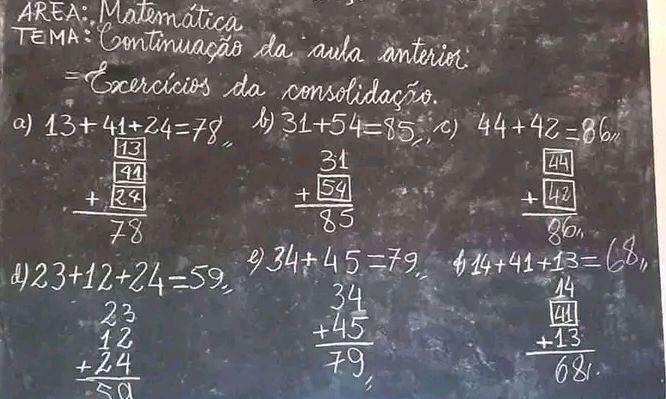 AREA: Matemática
TEMA: Continuação da aula anterior.
= Exercícios da consolidação.
a) 13+41+24=78,,
13
41
+ 24
78
b) 31+54=85,,
31
+ 54
85
c) 44+42=86,,
44
+ 42
86,,
d) 23+12+24=59,,
23
12
+24
59
e) 34+45=79,,
34
+45
79,,
f) 14+41+13=68,,
14
41
+13
68,,